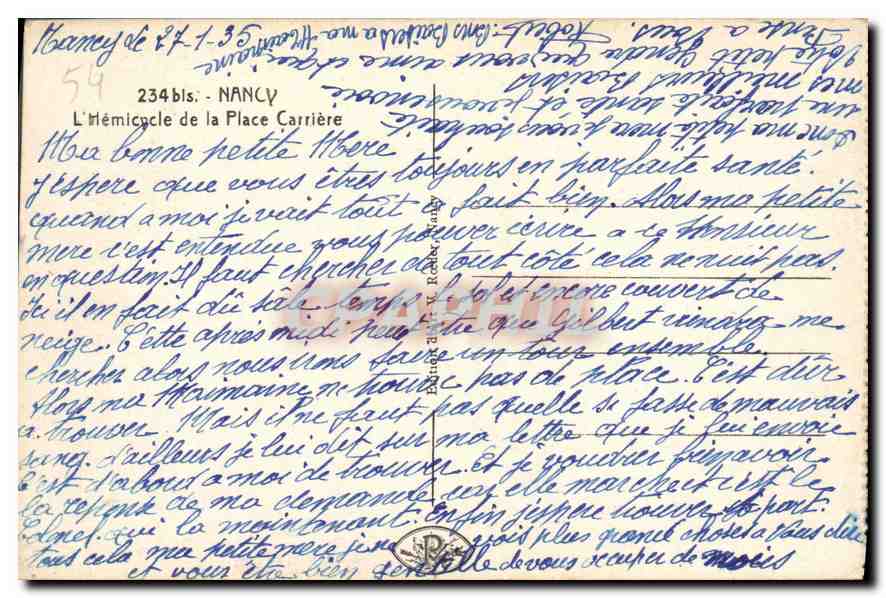 Nancy le 27-1-35
54
234bis. - NANCY
L'Hémicycle de la Place Carrière
Ma bonne petite Mere
J'espere que vous êtres toujours en parfaite santé.
quand a moi je vait tout fait bien. Alors ma petite
mere c'est entendue vous pouver écrire a ce Monsieur
en question. Il faut chercher de tout côté cela ne nuit pas.
Ici il en fait dû sâle temps le sol et encore couvert de
neige. Cétte après midi peut être que Gilbert viendra me
chercher alors nous irons faire un tour ensemble.
Alors ma Maimaine ne trouve pas de place. C'est dûr
a trouver. Mais il ne faut pas quelle se fasse de mauvais
sang. d'ailleurs je lui dit sur ma lettre que je lui envoie
C'est d'abord a moi de trouver. Et je voudrer bien avoir
la reponse de ma demande car elle marche et c'est le
Colonel qui la maintenant. Enfin j'espere trouver part.
tous cela ma petite mere je ne vois plus grand choses a vous dire
et vous être bien gentille de vous occuper de mois
Donc ma petite mere je vous souhaite
une parfaite santé et je vous envoie
mes meilleurs Baisers
Votre petit Gendre qui vous aime et qui
pense a vous.
Robert
Bons Baisers a ma Maimaine
Edition d'Art V. Roeder, Nancy
R